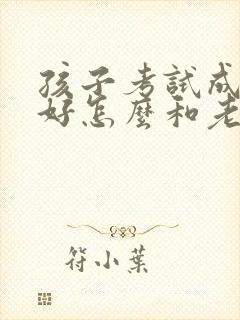 孩子考試成
好怎麼和老
符小葉